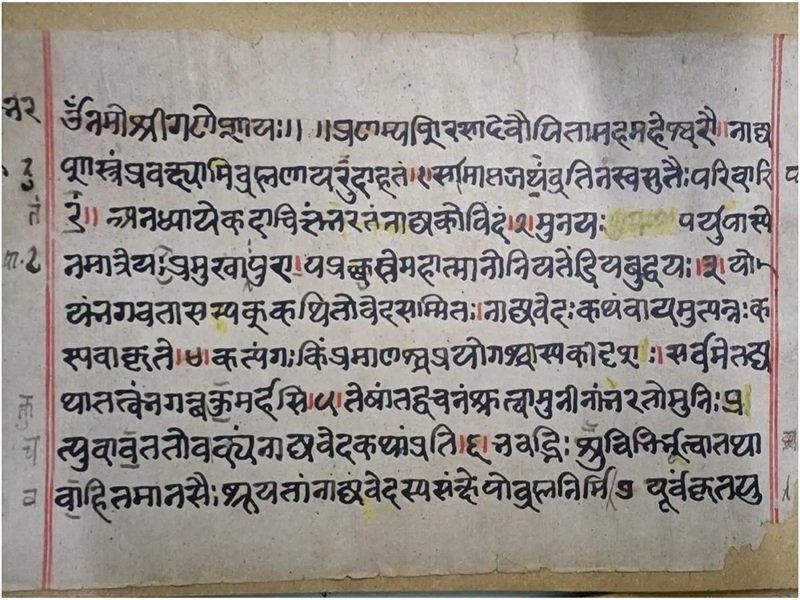 ॐ नमो श्रीगणेशाय नमः।। ।।प्रणम्य शिरसा देवौ पितामहमहेश्वरौ।। नाट्य
शास्त्रं प्रवक्ष्यामि ब्रह्मणा यदुदाहृतं।१। समाप्तजप्यं व्रतिनं स्वसुतैः परिवारि
तं।। अनध्याये कदाचित्तु भरतं नाट्यकोविदं।२। मुनयः पर्युपास्ये
नमात्रेयप्रमुखाः पुरा। पप्रच्छुस्ते महात्मानो नियतेंद्रियबुद्धयः।३। यो
यं भगवता सम्यक् कथितो वेदसम्मितः। नाट्यवेदः कथं वायमुत्पन्नः क
स्य वा कृते।४। कत्यंगः किंप्रमाणश्च प्रयोगश्चास्य कीदृशः। सर्वमेतद्य
थातत्वं भगवन्वक्तुमर्हसि।५। तेषां तद्वचनं श्रुत्वा मुनीनां भरतो मुनिः प्र
त्युवाच ततो वाक्यं नाट्यवेदकथां प्रति।६। भवद्भिः शुचिभिर्भूत्वा तथा
वहितमानसैः श्रूयतां नाट्यवेदस्य संक्षेपो ब्रह्मनिर्मि पूर्वं कृतयु